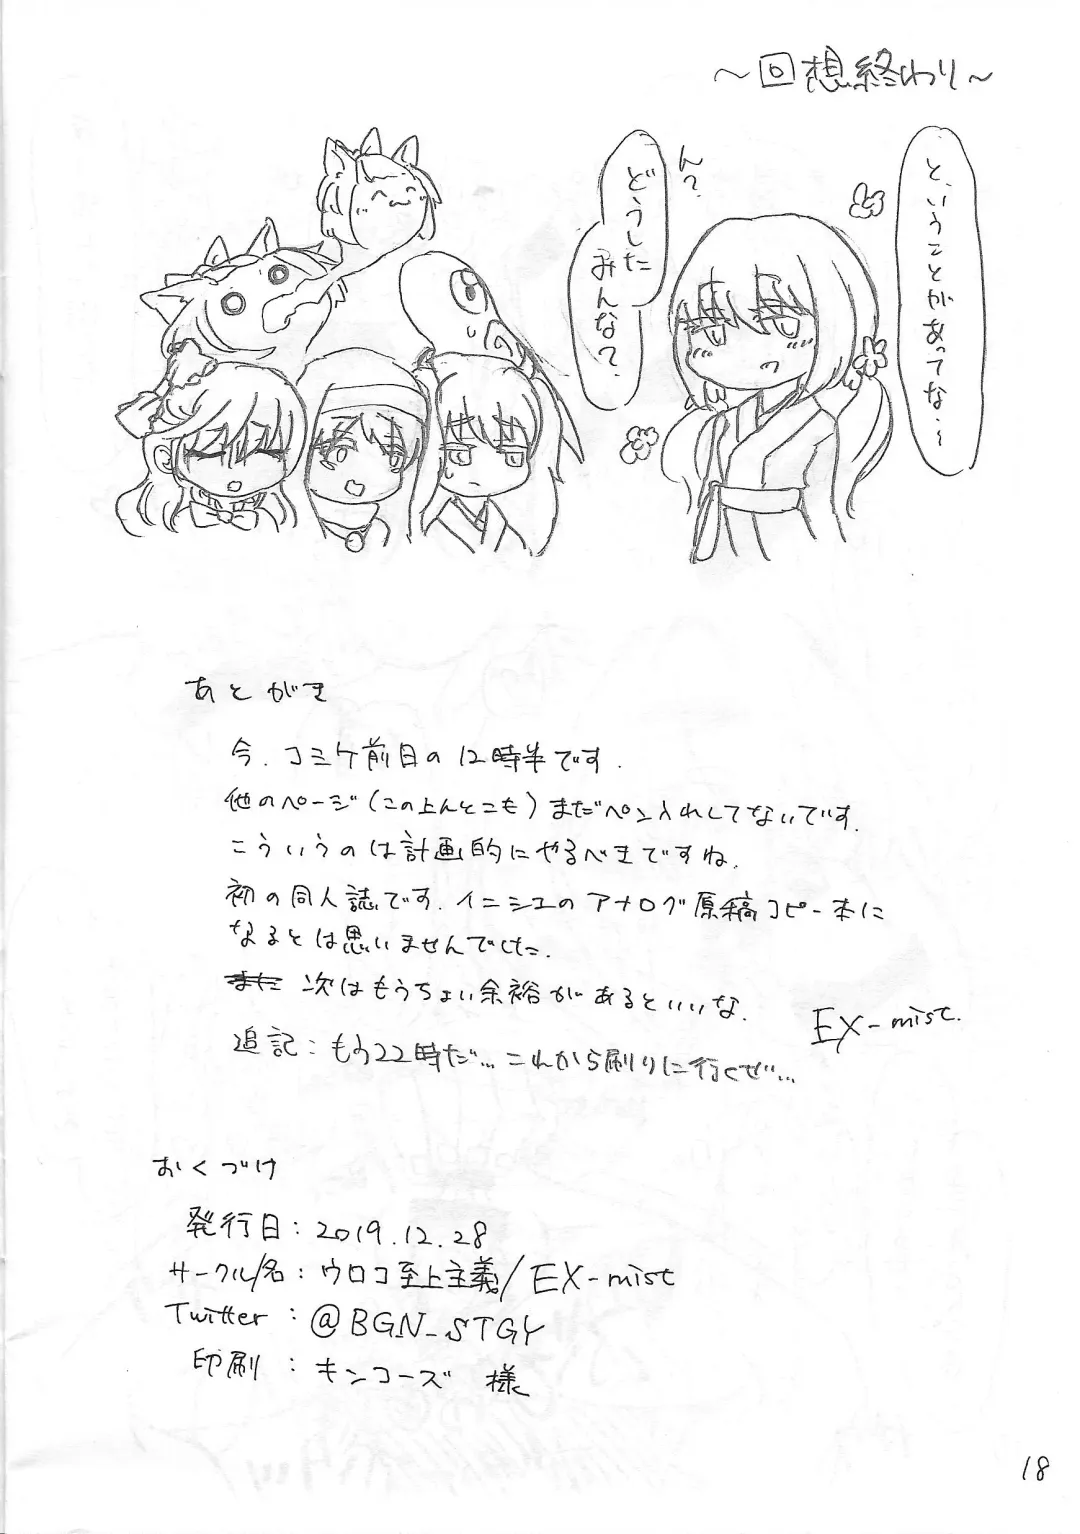 ～回想終わり～
と、いうことがあってな…
ん？
どうした
みんな？
あとがき
今、コミケ前日の12時半です．
他のページ(この上んとこも)まだペン入れしてないです．
こういうのは計画的にやるべきですね．
初の同人誌です．イニシエのアナログ原稿コピー本に
なるとは思いませんでした．
また 次はもうちょい余裕があるといいな．
EX-mist.
追記：もう22時だ…これから刷りに行くぜ…
おくづけ
発行日：2019.12.28
サークル/名：ウロコ至上主義/EX-mist
Twitter：@BGN_STGY
印刷：キンコーズ 様
18